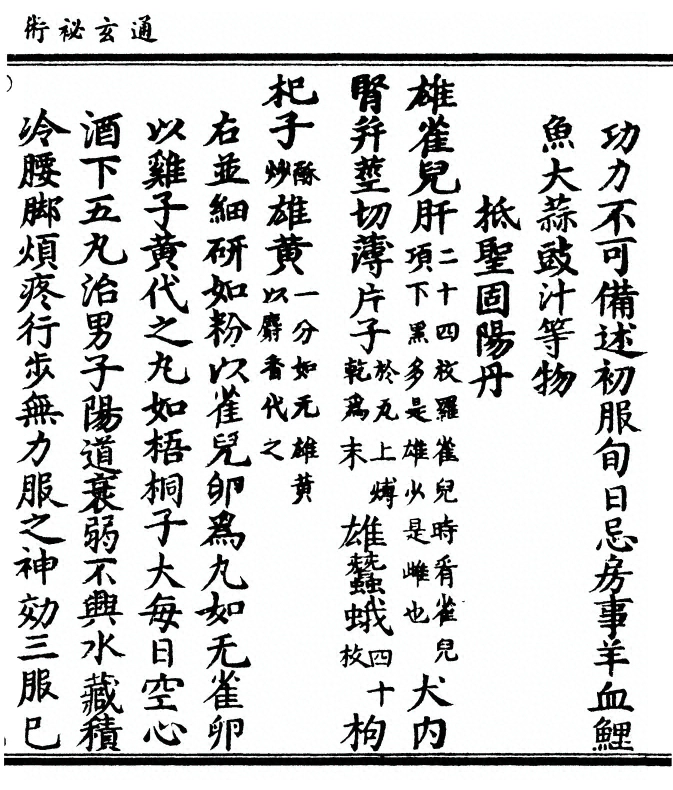 通玄祕術
功力不可備述初服旬日忌房事羊血鯉
魚大蒜豉汁等物
抵聖固陽丹
雄雀兒肝二十四枚羅雀兒時看雀兒項下黑多是雄少是雌也犬内
腎幷莖切薄片子於瓦上煿乾爲末雄蠶蛾四十枚枸
杞子酥炒雄黃一分如无雄黃以麝香代之
右並細研如粉以雀兒卵爲丸如无雀卵
以雞子黃代之丸如梧桐子大每日空心
酒下五丸治男子陽道衰弱不興水藏積
冷腰脚煩疼行步無力服之神効三服已